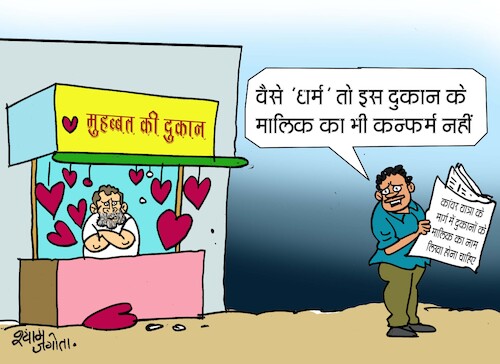 मुहब्बत की दुकान
वैसे 'धर्म' तो इस दुकान के
मालिक का भी कन्फर्म नहीं
कांवड़ यात्रा के
मार्ग में दुकानों के
मालिक का नाम
लिखा होना चाहिए
श्याम
जगोता.